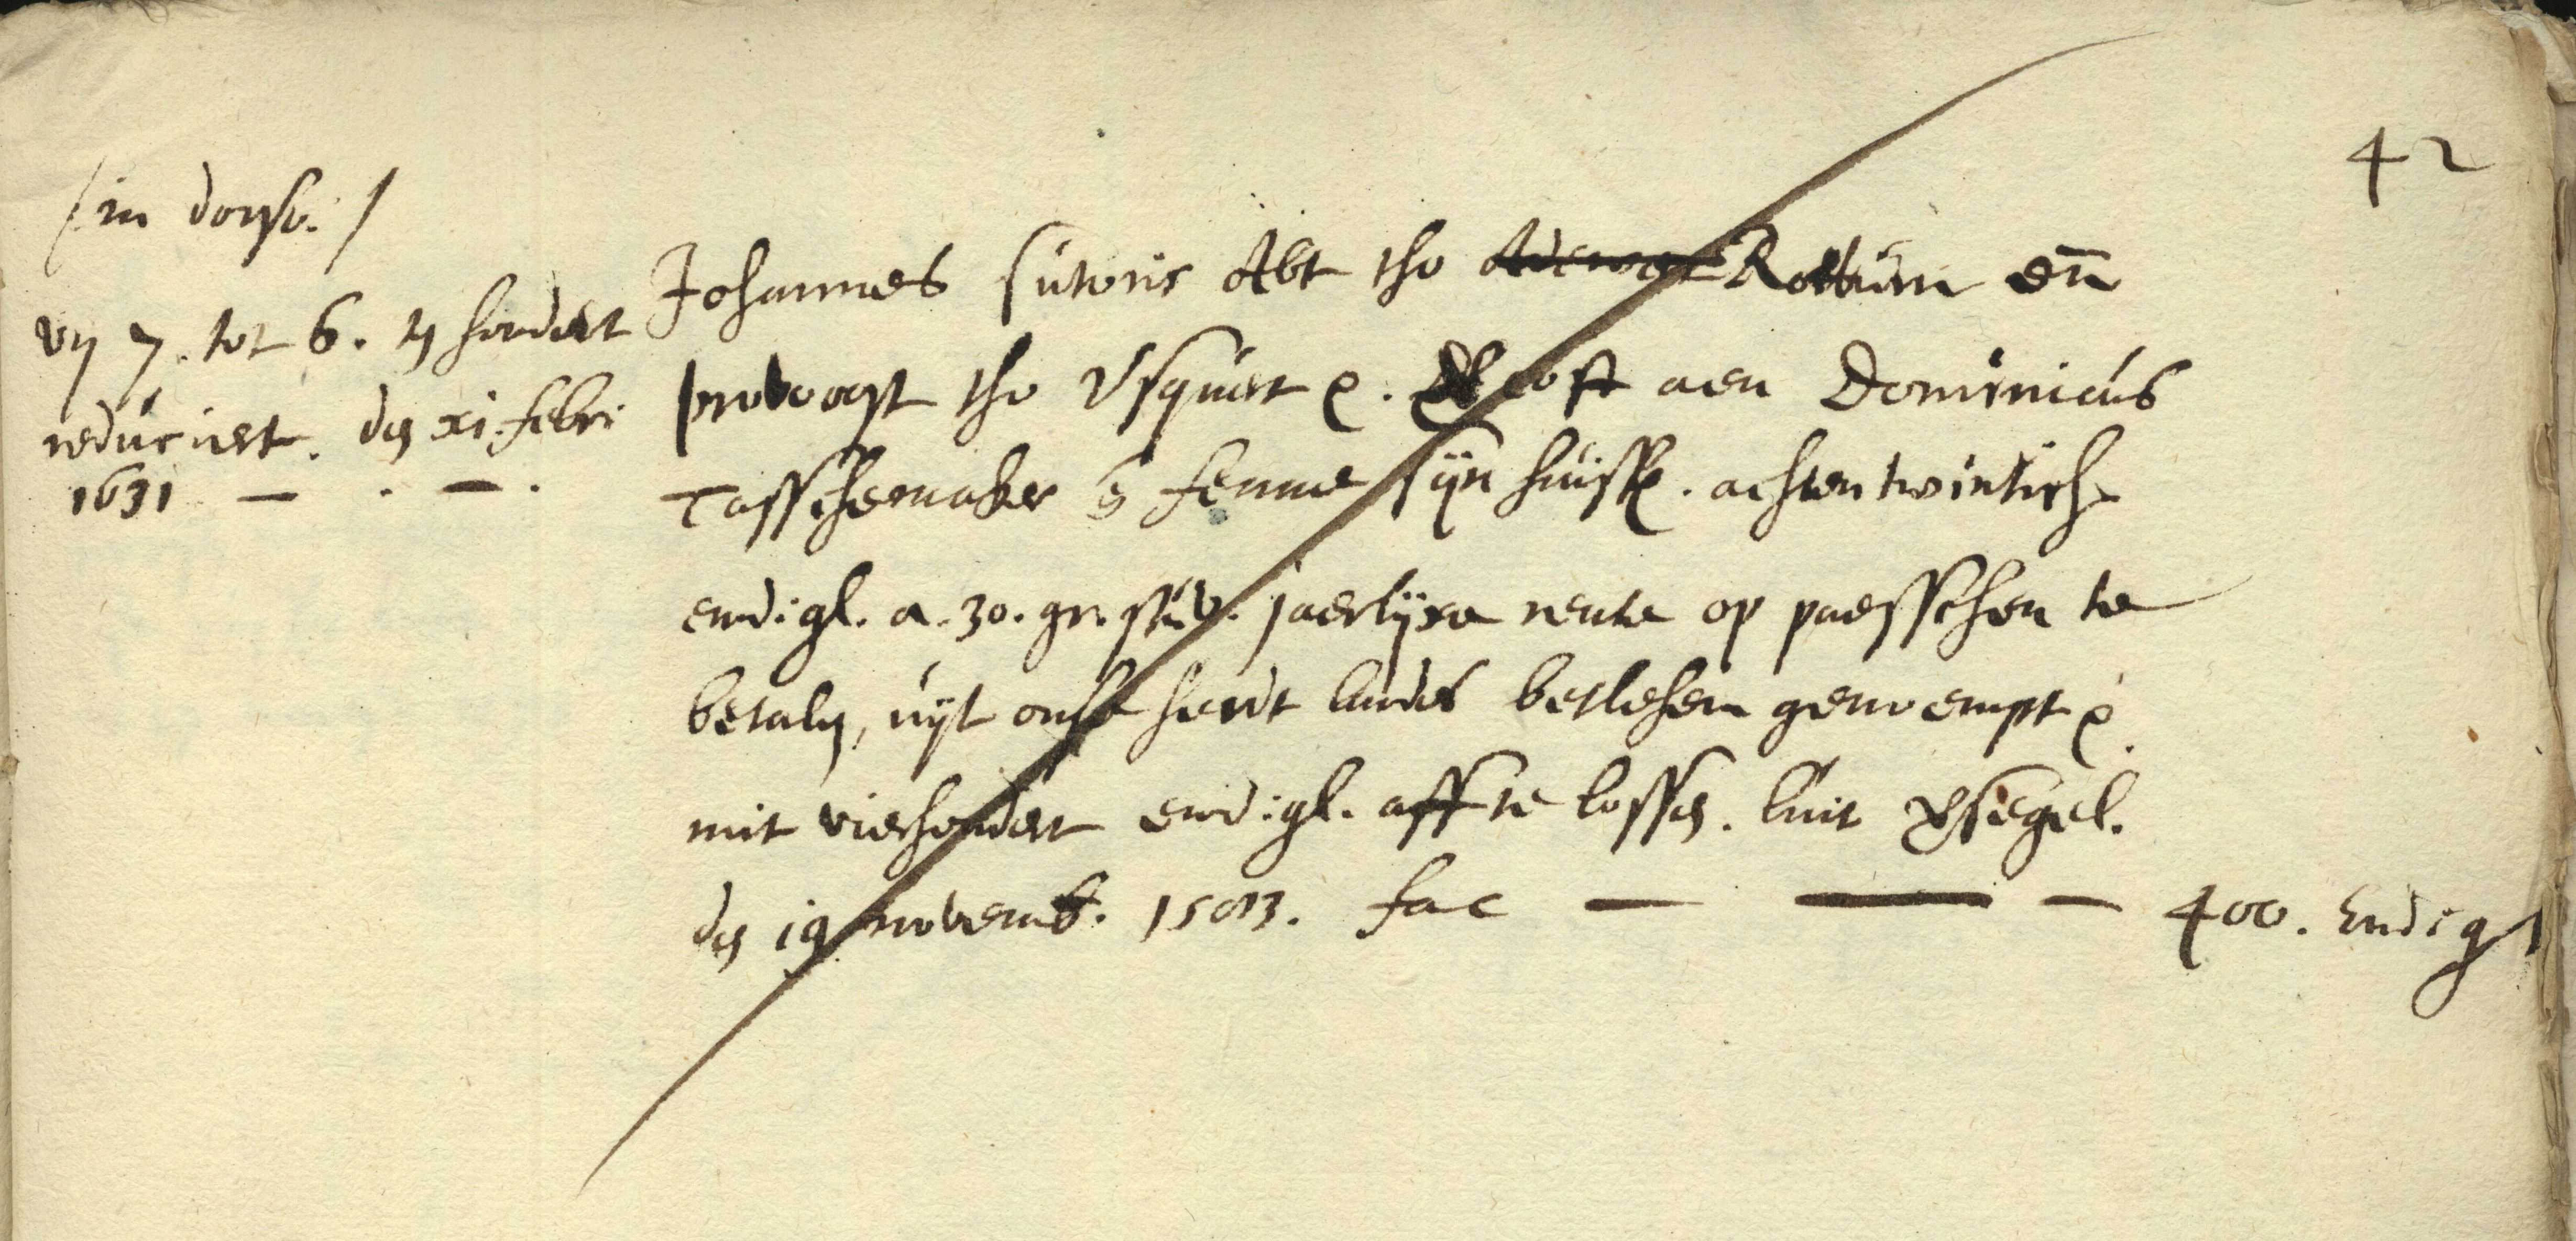 42
(in dorso:)
vn 7. tot 6. in hondert
reduciert. den xi. febri
1631 — . — .
Johannes sutoris Abt tho Rottum en̄
provoogst tho Usquert &. oft aen Dominicus
Tasschemaker & femme sijn huisfr. achtentwintich
emd: gl. a. 30. gr. stuv. jaerlijxe rente op paesschen te
betalen, uyt onse heert landes betlehem genoempt &.
mit vierhondert emd: gl. aff te lossen. luit segel.
den 19 novemb. 1583. fac — — — 400. Emd: gl